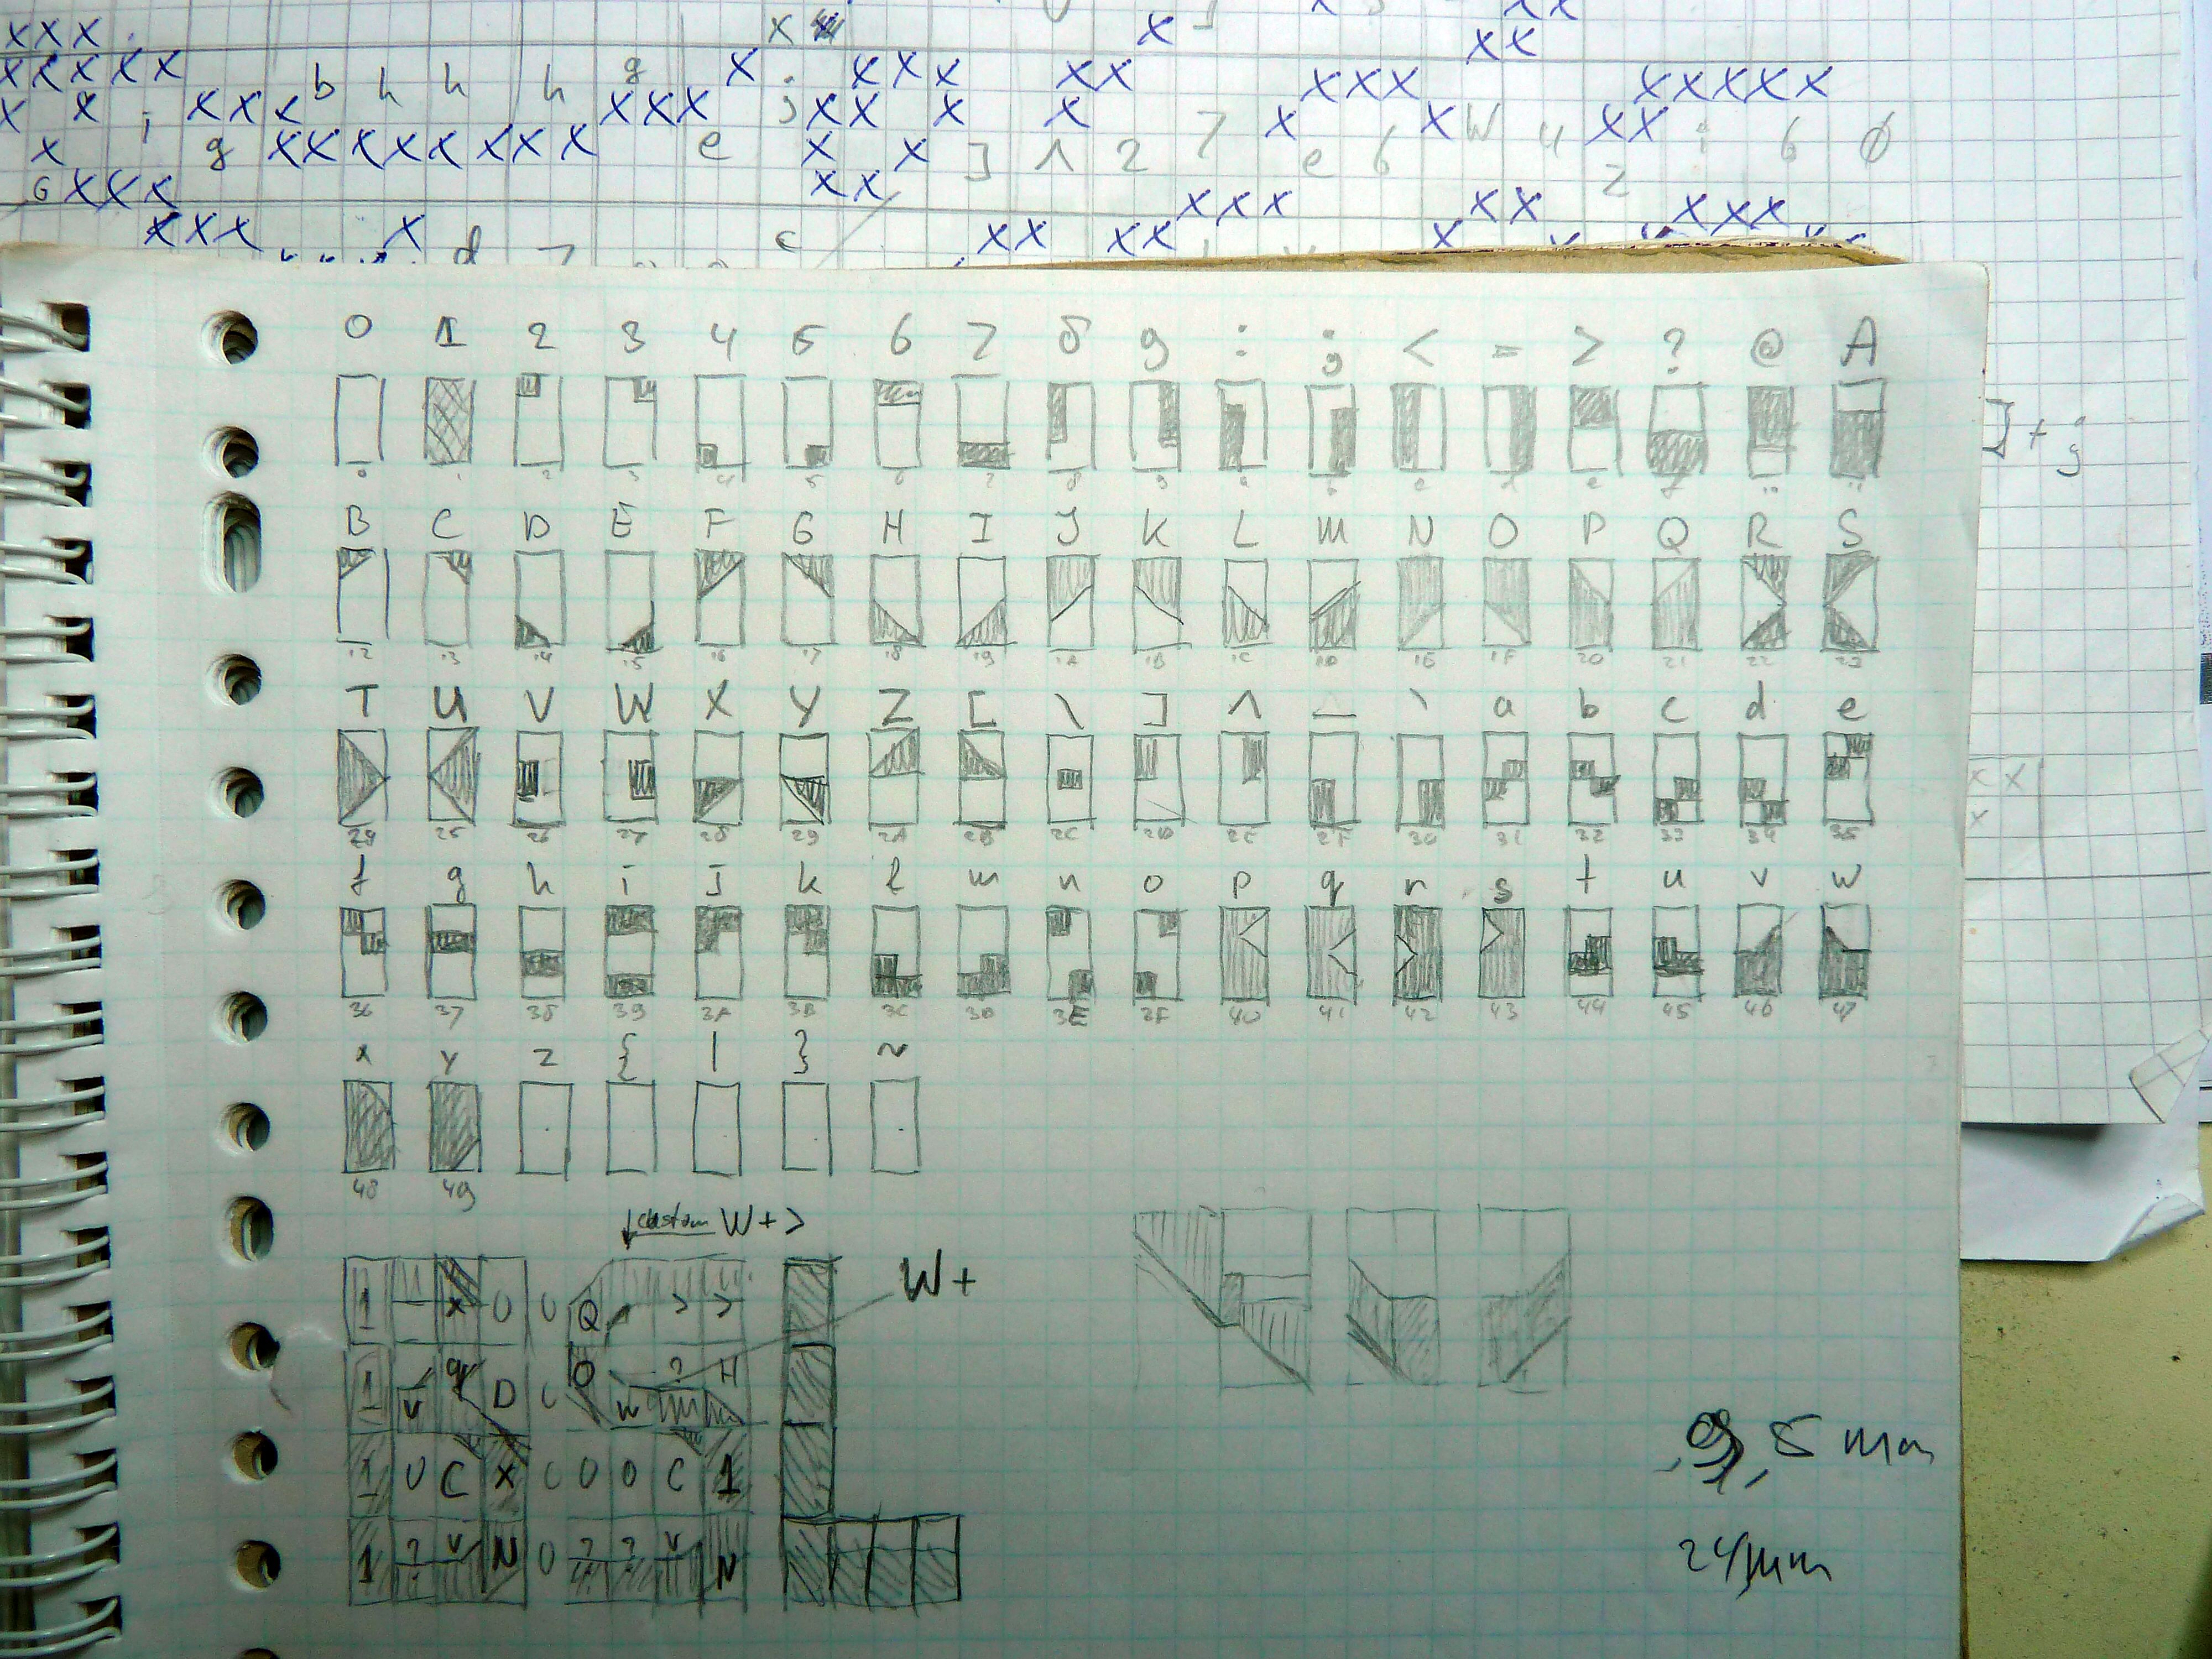 x x x x
x x x x x b h h h g x j x x x x x x x x x x x x x x
x x i x x x x x x x x x x x 7 x x W 4 x x i 6 0
x g x x x x x x x x e x x ] ^ 2 e 6 z
6 x x x x x x x x x x x x x
x x x x d c x x x x x
0 1 2 3 4 5 6 7 8 9 : ; < = > ? @ A
0 1 2 3 4 5 6 7 8 9 a b c d e f 10 11
B C D E F G H I J K L M N O P Q R S
12 13 14 15 16 17 18 19 1A 1B 1C 1D 1E 1F 20 21 22 23
T U V W X Y Z [ \ ] ^ _ ` a b c d e
24 25 26 27 28 29 2A 2B 2C 2D 2E 2F 30 31 32 33 34 35
f g h i j k l m n o p q r s t u v w
36 37 38 39 3A 3B 3C 3D 3E 3F 40 41 42 43 44 45 46 47
x y z { | } ~
48 49
↓custom W+>
1 x 0 0 Q > >
W+
1 v g D 0 O w ? H
1 0 C x 0 0 0 C 1
1 ? v N 0 ? ? v N
] + j
x x
x
, 5 mm
24mm